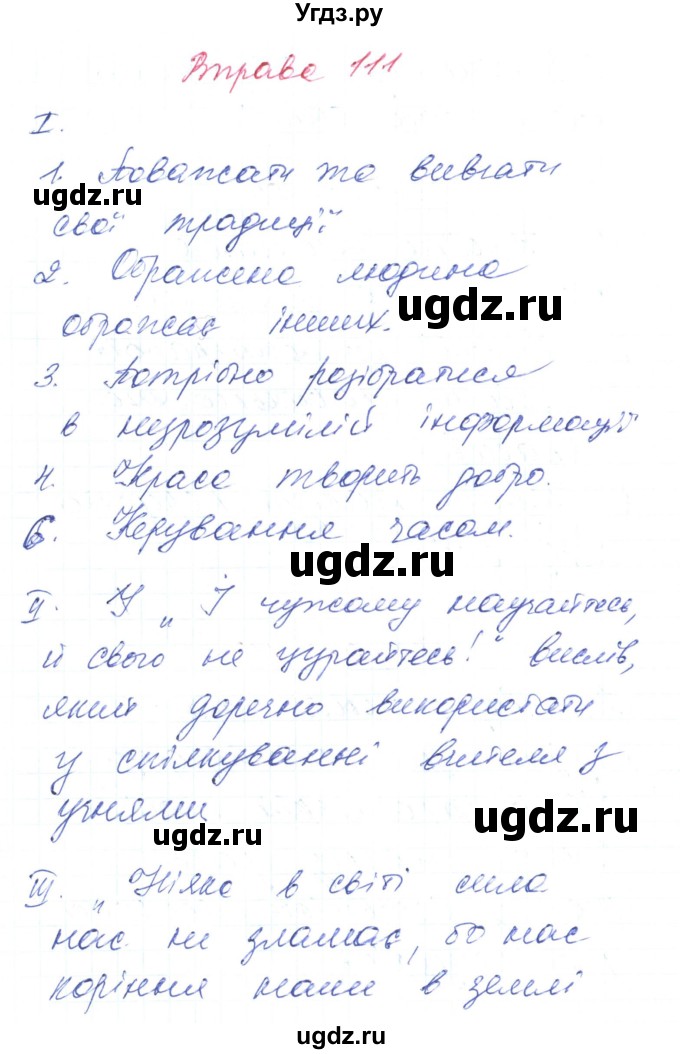 Угдз.ру
Вправа 111
I.
1. Поважати та вивчати
ugdz.ru
свої традиції
2. Ображена людина
ugdz.ru
ображає інших.
3. Потрібно розібратися
в незрозумілій інформації
ugdz.ru
4. Краса творить добро.
6. Керування часом.
ugdz.ru
II. У „І чужому научайтесь,
й свого не цурайтесь!" вислів,
який доречно використати
у спілкуванні вчителя з
ugdz.ru
учнями
ugdz.ru
III. „Ніяка в світі сила
нас не зламає, бо нас
ugdz.ru
коріння наши в землі
ugdz.ru